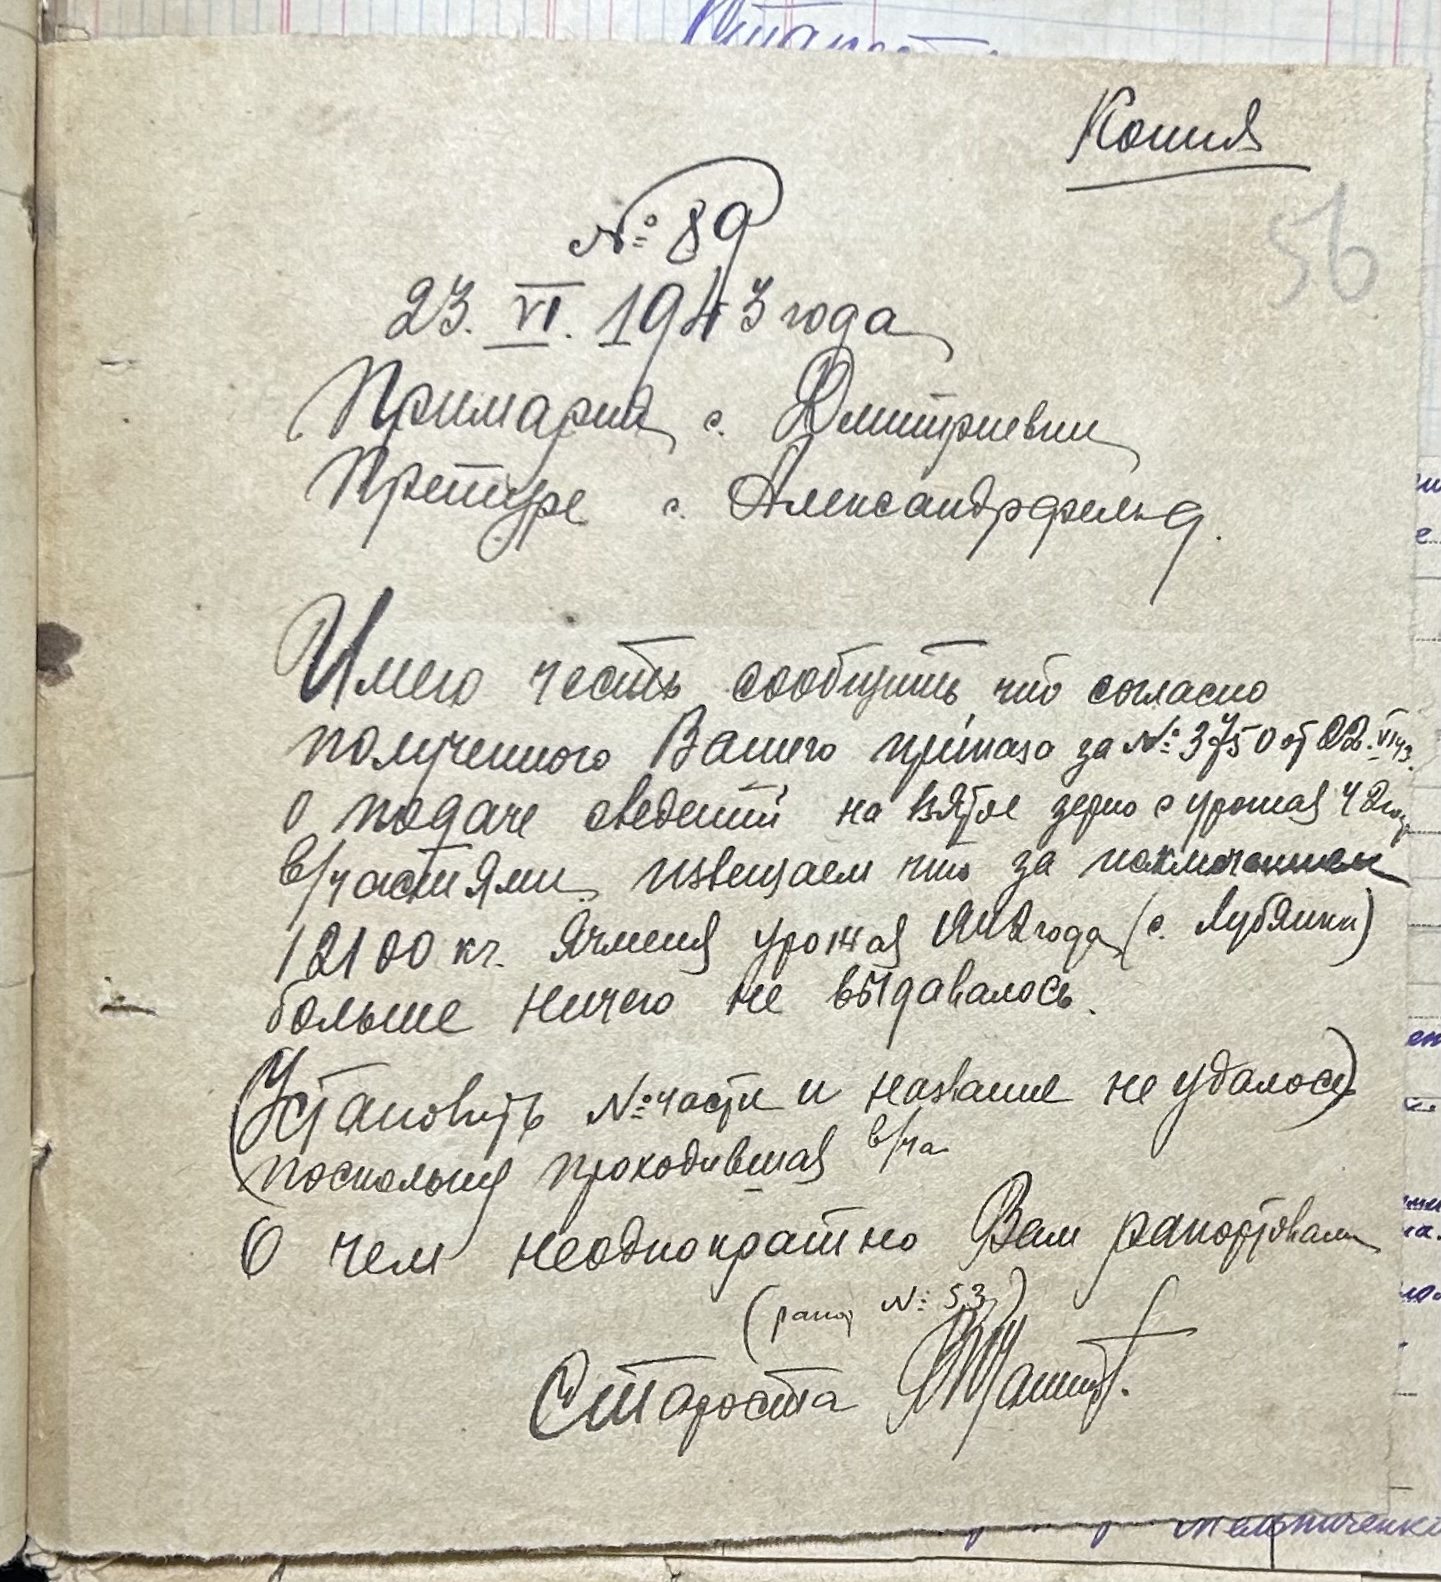 Копия
56
№ 89
23. VI. 1943 года
Примария с. Дмитриевки
Претуре с. Александрфельд.
Имею честь сообщить что согласно
полученного Вашего приказа за № 3750 от 22. VI 43.
о подаче сведений на взятое зерно с урожая 42 год
в/частями извещаем что за исключением
12100 кг. Ячменя урожая 1942 года (с. Лубянки)
больше ничего не выдавалось.
(Установить № части и название не удалось)
поскольку проходившая в/ча
О чем неоднократно Вам рапортовали
(рапор № 53)
Староста